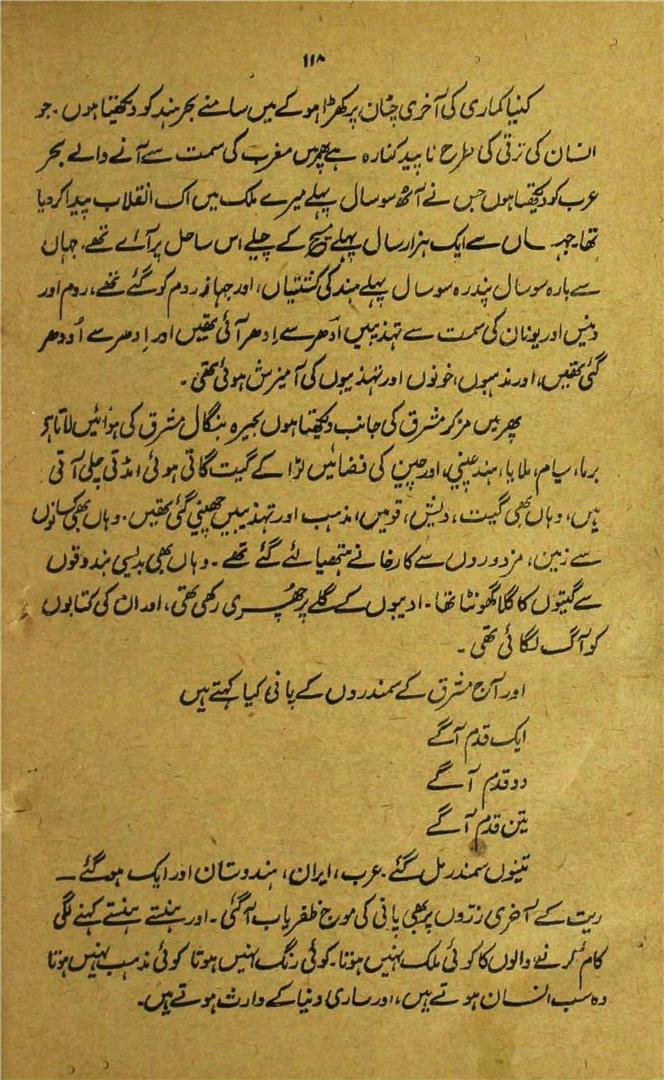 ۱۱۸
کنیا کماری کی آخری چٹان پر کھڑا ہو کے میں سامنے بحر ہند کو دیکھتا ہوں۔ جو
انسان کی ترقی کی طرح ناپید کنارہ ہے پھر میں مغرب کی سمت سے آنے والے بحر
عرب کو دیکھتا ہوں جس نے آٹھ سو سال پہلے میرے ملک میں اک انقلاب پیدا کر دیا
تھا۔ جہاں سے ایک ہزار سال پہلے مسیح کے چیلے اس ساحل پر آئے تھے، جہاں
سے بارہ سو سال پندرہ سو سال پہلے ہند کی کشتیاں، اور جہاز روم کو گئے تھے، روم اور
وینس اور یونان کی سمت سے تہذیبیں اُدھر سے اِدھر آئی تھیں اور اِدھر سے اُودھر
گئی تھیں، اور مذہبوں، خونوں اور تہذیبوں کی آمیزش ہوئی تھی۔
پھر میں مڑ کر مشرق کی جانب دیکھتا ہوں بحیرہ بنگال مشرق کی ہوائیں لاتا ہے
برما، سیام، ملایا، ہند چینی، اور چین کی فضائیں لڑا کے گیت گاتی ہوئی امڈتی چلی آتی
ہیں، وہاں بھی گیت، دیش، قومیں، مذہب اور تہذیبیں چھینی گئی تھیں۔ وہاں بھی کسانوں
سے زمین، مزدوروں سے کارخانے ہتھیائے گئے تھے۔ وہاں بھی بدیسی بندوقوں
سے گیتوں کا گلا گھونٹا تھا۔ ادیبوں کے گلے پر چھُری رکھی تھی، اور ان کی کتابوں
کو آگ لگائی تھی۔
اور آج مشرق کے سمندروں کے پانی کیا کہتے ہیں
ایک قدم آگے
دو قدم آگے
تین قدم آگے
تینوں سمندر مل گئے۔ عرب، ایران، ہندوستان اور ایک ہو گئے ــ
ریت کے آخری ذرّوں پر بھی پانی کی موج ظفر یاب آ گئی۔ اور ہنستے ہنستے کہنے لگی
کام کرنے والوں کا کوئی ملک نہیں ہوتا۔ کوئی رنگ نہیں ہوتا کوئی مذہب نہیں ہوتا
وہ سب انسان ہوتے ہیں، اور ساری دنیا کے وارث ہوتے ہیں۔